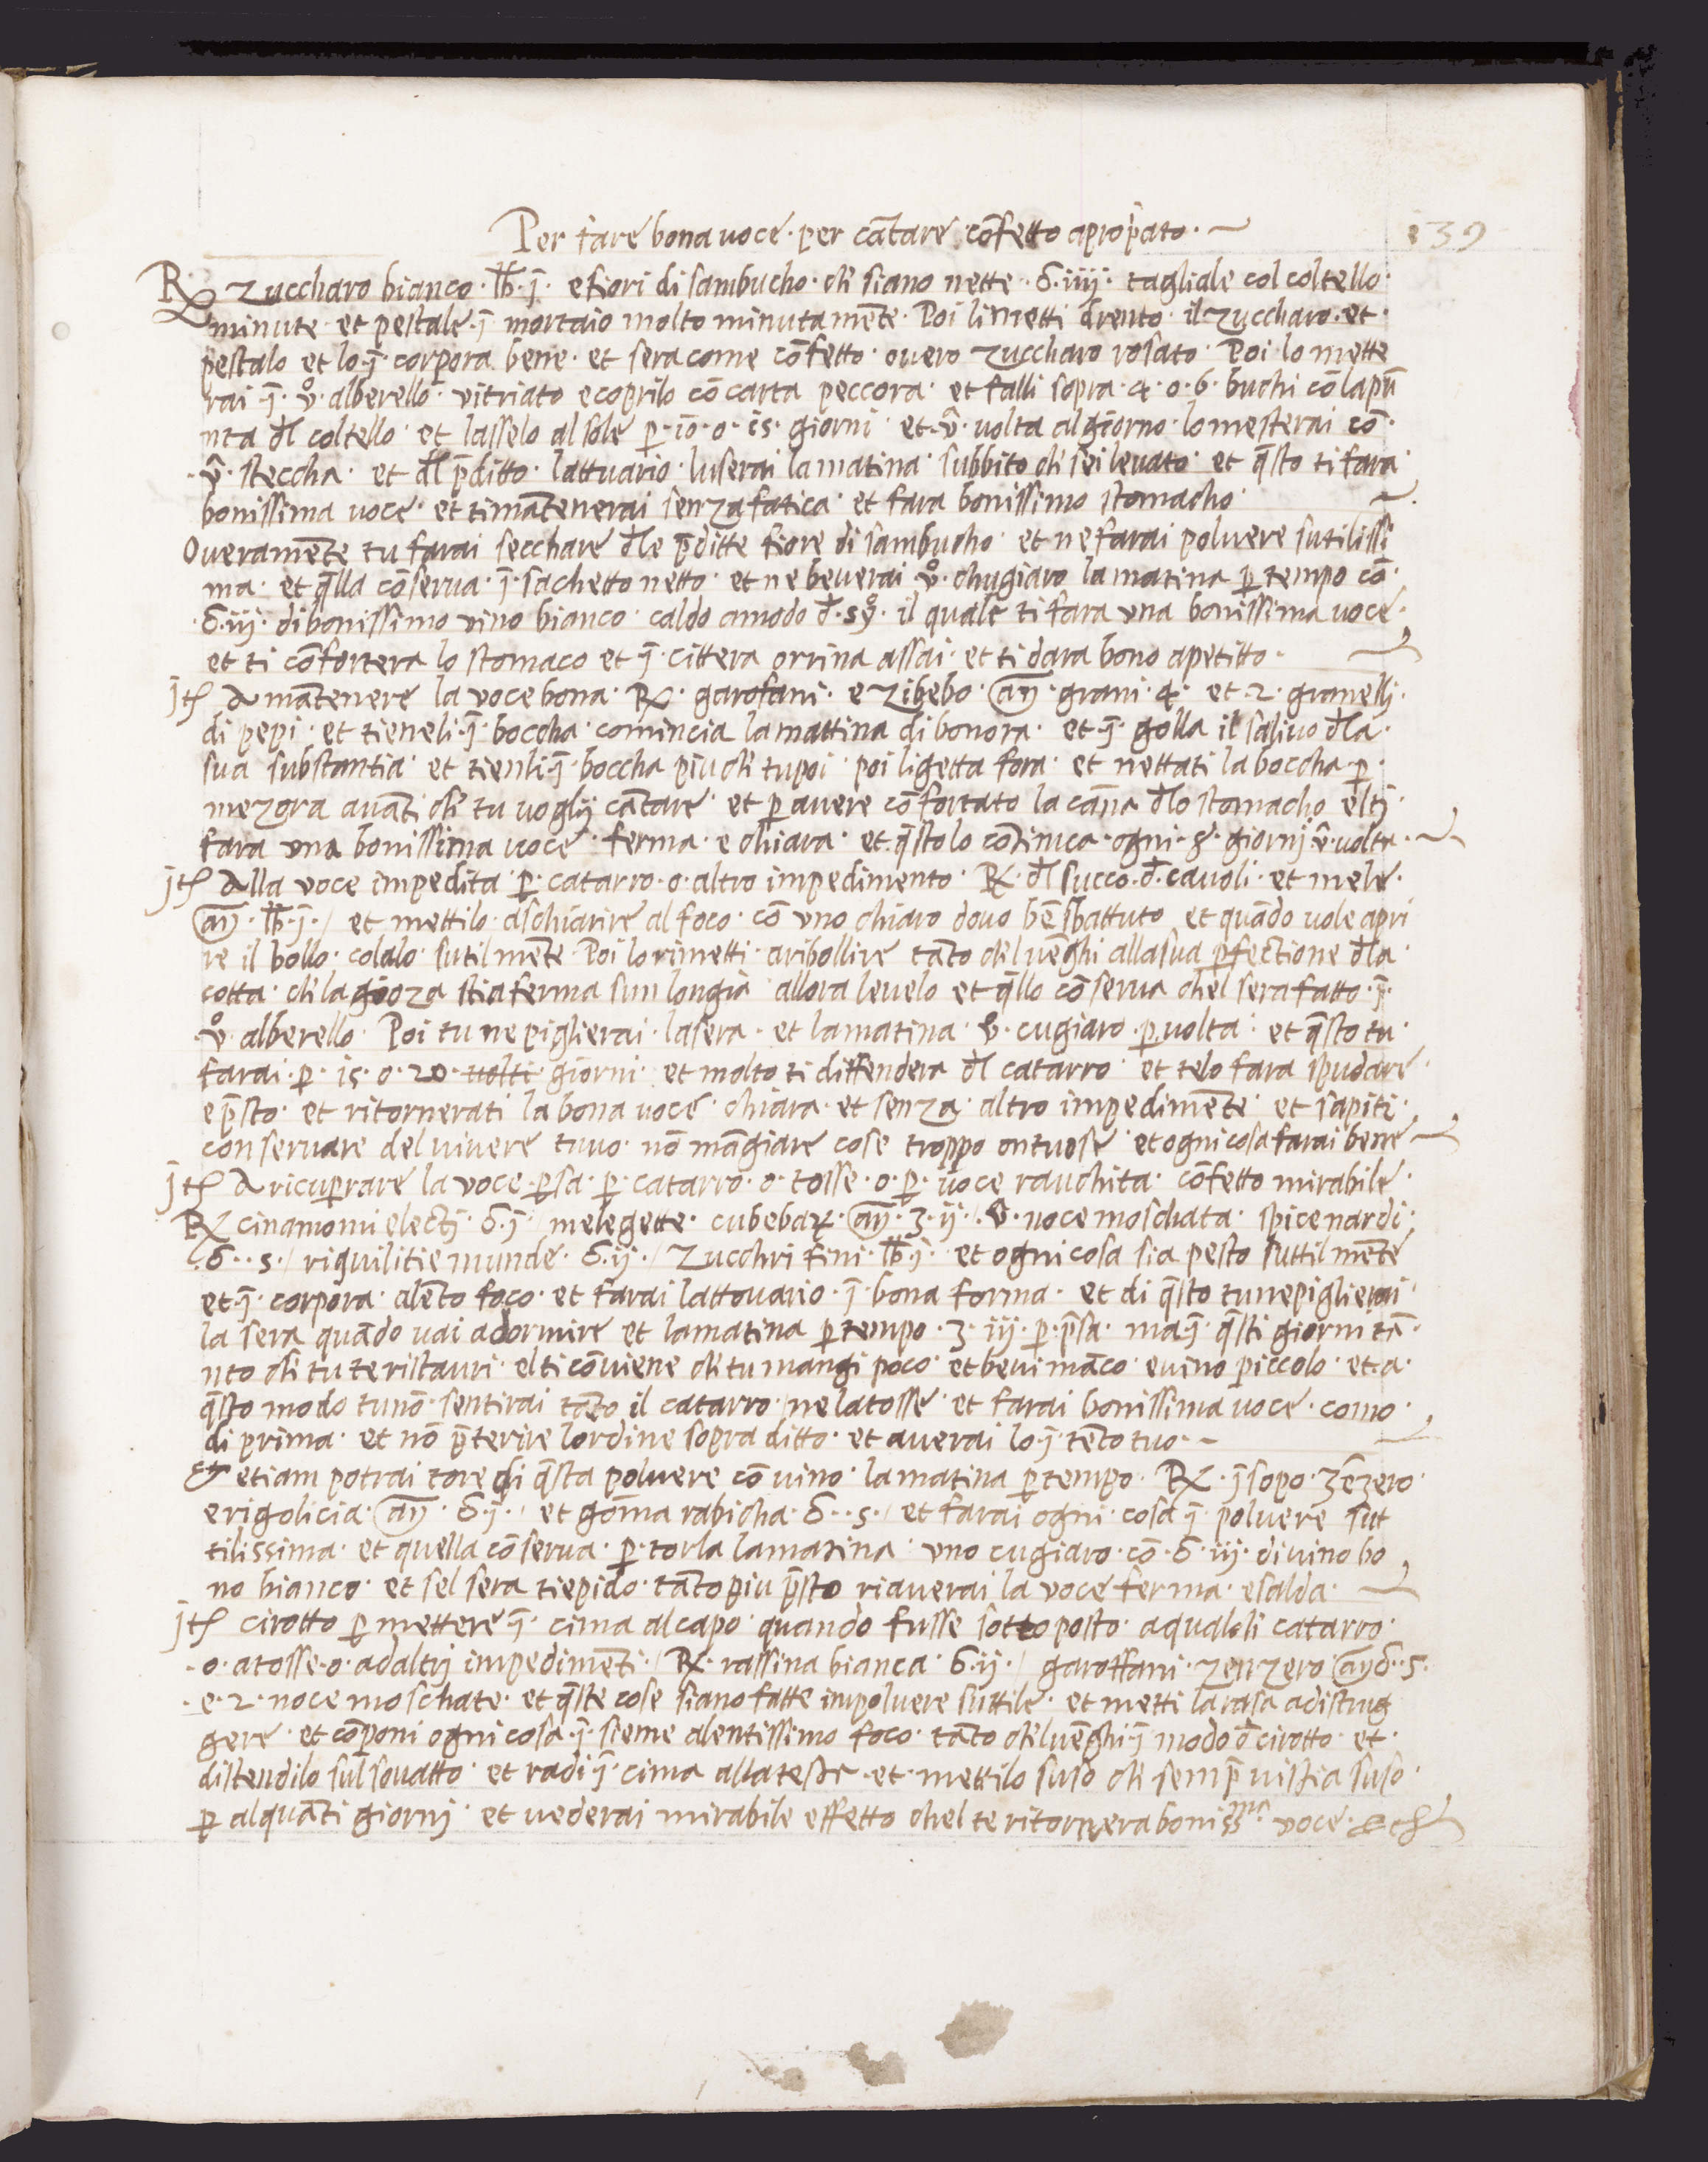 Per fare bona uoce · per cātare · cōfetto apropiato ·
139
℞ Zuccharo bianco · lb · j̄ · e fiori di sambucho · ch̄ siano nette · ʒ · iiij · tagliale col coltello ·
minute · et pestale · j̄ · mortaio molto minutamēte · Poi li metti drento · il zuccharo · et ·
pestalo et lo · j̄ · corpora bene · et sera come cōfetto · ouero zuccharo rosato · Poi · lo mette
rai j̄ · v̊ · alberello · vitriato e coprilo cō carta peccora · et falli sopra · 4 · o · 6 · buchi cō la pū
nta dl̄ coltello · et lasselo al sole p̄ · 10 · o · 15 · giorni · et · v̄ · uolta al giorno · lo mesterai cō ·
· v̄ · steccha · et dl̄ p̄ditto · lattuario · luserai la matina · subbito ch̄ sei leuato · et q̄sto ti fara ·
bonissima uoce · et ti mātenerai senza fatica · et fara bonissimo stomacho ·
Oueramēte tu farai secchare dl̄e p̄ditte fiore di sambucho · et ne farai poluere sutilissi
ma · et q̄lla cōserua · j̄ · sachetto netto · et ne beuerai · v̊ · chugiaro la matina p̄ tempo cō ·
· ʒ · iij · di bonissimo vino bianco · caldo a modo d̄ · sẙ · il quale ti fara vna bonissima uoce ·
et ti cōfortera lo stomaco et j̄ · cittera orrina assai · et ti dara bono apetitto ·
jtē A mātenere la voce bona · ℞ · garofani · e zibebo · an̄ · grani · 4 · et · 2 · granelli ·
di pepi · et tieneli · j̄ · boccha · comincia la mattina di bonora · et · j̄ · golla il saliuo dl̄a ·
sua substantia · et tienli · j̄ · boccha piu ch̄ tu poi · poi li getta fora · et nettati la boccha · p̄ ·
mezora auāti ch̄ tu uoglij cātare · et p̄ auere cōfortato la cāna dl̄o stomacho el tj ·
fara vna bonissima uoce · ferma · e chiara · et q̄sto lo cōtinua · ogni · 8 · giornj · v̄ · uolta ·
jtē Alla voce impedita · p̄ · catarro · o · altro impedimento · ℞ · dl̄ succo · d̄ · cauoli · et mele ·
an̄ · lb · j̄ · / et mettilo · a schiarire al foco · cō vno chiaro douo bē sbattuto et quādo uole apri
re il bollo · colalo · sutilmēte · Poi lo rimetti · a ribollire tāto ch̄l uēghi alla sua p̄fectione dl̄a ·
cotta · ch̄ la gioza stia ferma sun longia · allora leuelo et q̄llo cōserua chel sera fatto · j̄ ·
· v̊ · alberello · Poi tu ne piglierai · la sera · et la matina · v̊ · cugiaro · p̄ uolta · et q̄sto tu ·
farai · p̄ · 15 · o · 20 · uolti · giorni · et molto ti diffendera dl̄ catarro · et telo fara spudare ·
e p̄sto · et ritornerati la bona uoce · chiara · et senza · altro impedimēte · et sapiti ·
conseruare del viuere tuuo · nō māgiare cose troppo ontuose · et ogni cosa farai bene
jtē A ricup̄rare la voce p̄sa · p̄ · catarro · o · tosse · o · p̄ · uoce rauchita · cōfetto mirabile ·
℞ cinamomi electj · ʒ · j̄ · / melegette · cubebaꝝ · an̄ · ʒ · ij · · v̄ · noce moschata · spicenardi ·
· ʒ · · s · / riquilitie munde · ʒ · ij · / Zucchri fini · lb · j̄ · et ogni cosa sia pesto suttilmēte
et · j̄ · corpora · a lēto foco · et farai lattouario · j̄ · bona forma · et di q̄sto tu ne piglierai ·
la sera quādo uai a dormire et la matina p̄ tempo · ʒ · iij · p̄ · p̄sa · ma j̄ · q̄sti giorni tā ·
nto ch̄ tu te ristauri · el ti cōuiene ch̄ tu mangi poco · et beui māco · e uino piccolo · et · a ·
q̄sto modo tu nō · sentirai tāto il catarro · / ne la tosse · et farai bonissima uoce · como ·
di prima · et nō p̄terire lordine sopra ditto · et auerai lo · j̄ tēto tuo ·
Et etiam potrai tore di q̄sta poluere cō vino · la matina p̄ tempo · ℞ · jsopo · zēzero ·
e rigolicia · an̄ · ʒ · j̄ · / et gōma rabicha · ʒ · · s · / et farai ogni · cosa j̄ · poluere sut
tilissima · et quella cōserua · p̄ · torla la matina · vno cugiaro · cō · ʒ · iij · di uino bo
no bianco · et sel sera tiepido · tāto piu p̄sto riauerai la voce ferma · e salda ·
jtē cirotto p̄ mettere j̄ · cima al capo · quando fusse sotto posto · a quali li catarro ·
· o · a tosse · o · ad altrj impedimēti · / ℞ · rassina bianca · ʒ · ij · / garoffani · zenzero an̄ ʒ · s ·
· e · 2 · noce moschate · et q̄ste cose siano fatte in poluere suttile · et metti la rasa a distrug
gere · et cōponi ogni cosa · j̄ · sieme a lentissimo foco · tāto ch̄l uēghi j̄ modo d̄ cirotto · et ·
distendilo sul souatto · et radi j̄ · cima alla testa · et · mettilo suso ch̄ semp̄ ui stia suso ·
p̄ alquāti giornj · et uederai mirabile effetto chel te ritornera boniss^ma · voce · &c